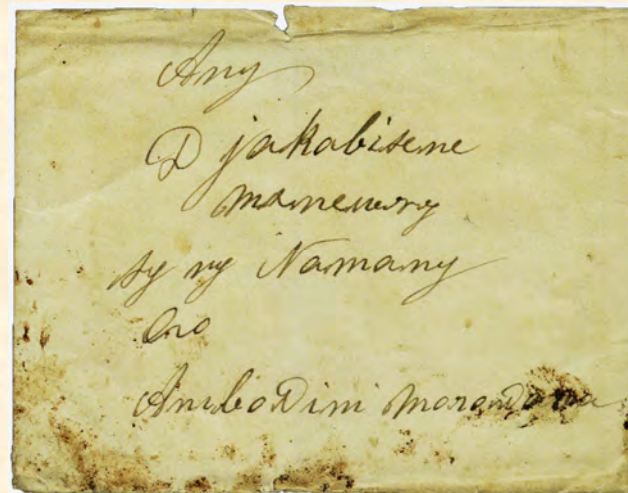 Any
D jakabisene
mameuvry
sy ny Namany
Ao
AmboDini MoronDava